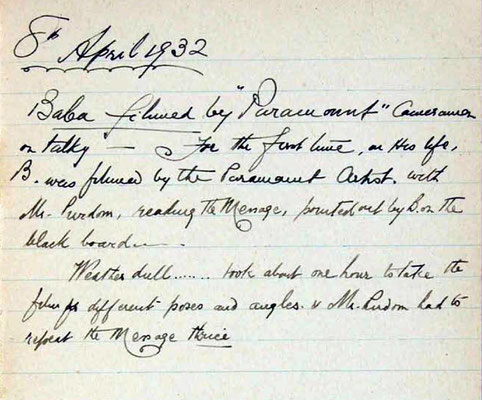 8th April 1932
Baba filmed by "Paramount" Cameraman
on talky — For the first time, in His life,
B. was filmed by the Paramount Artist. with
Mr. Purdom, reading the Message, pointed out by B. on the
black board —
Weather dull....... took about one hour to take the
film for different poses and angles. & Mr. Purdom had to
repeat the Message thrice